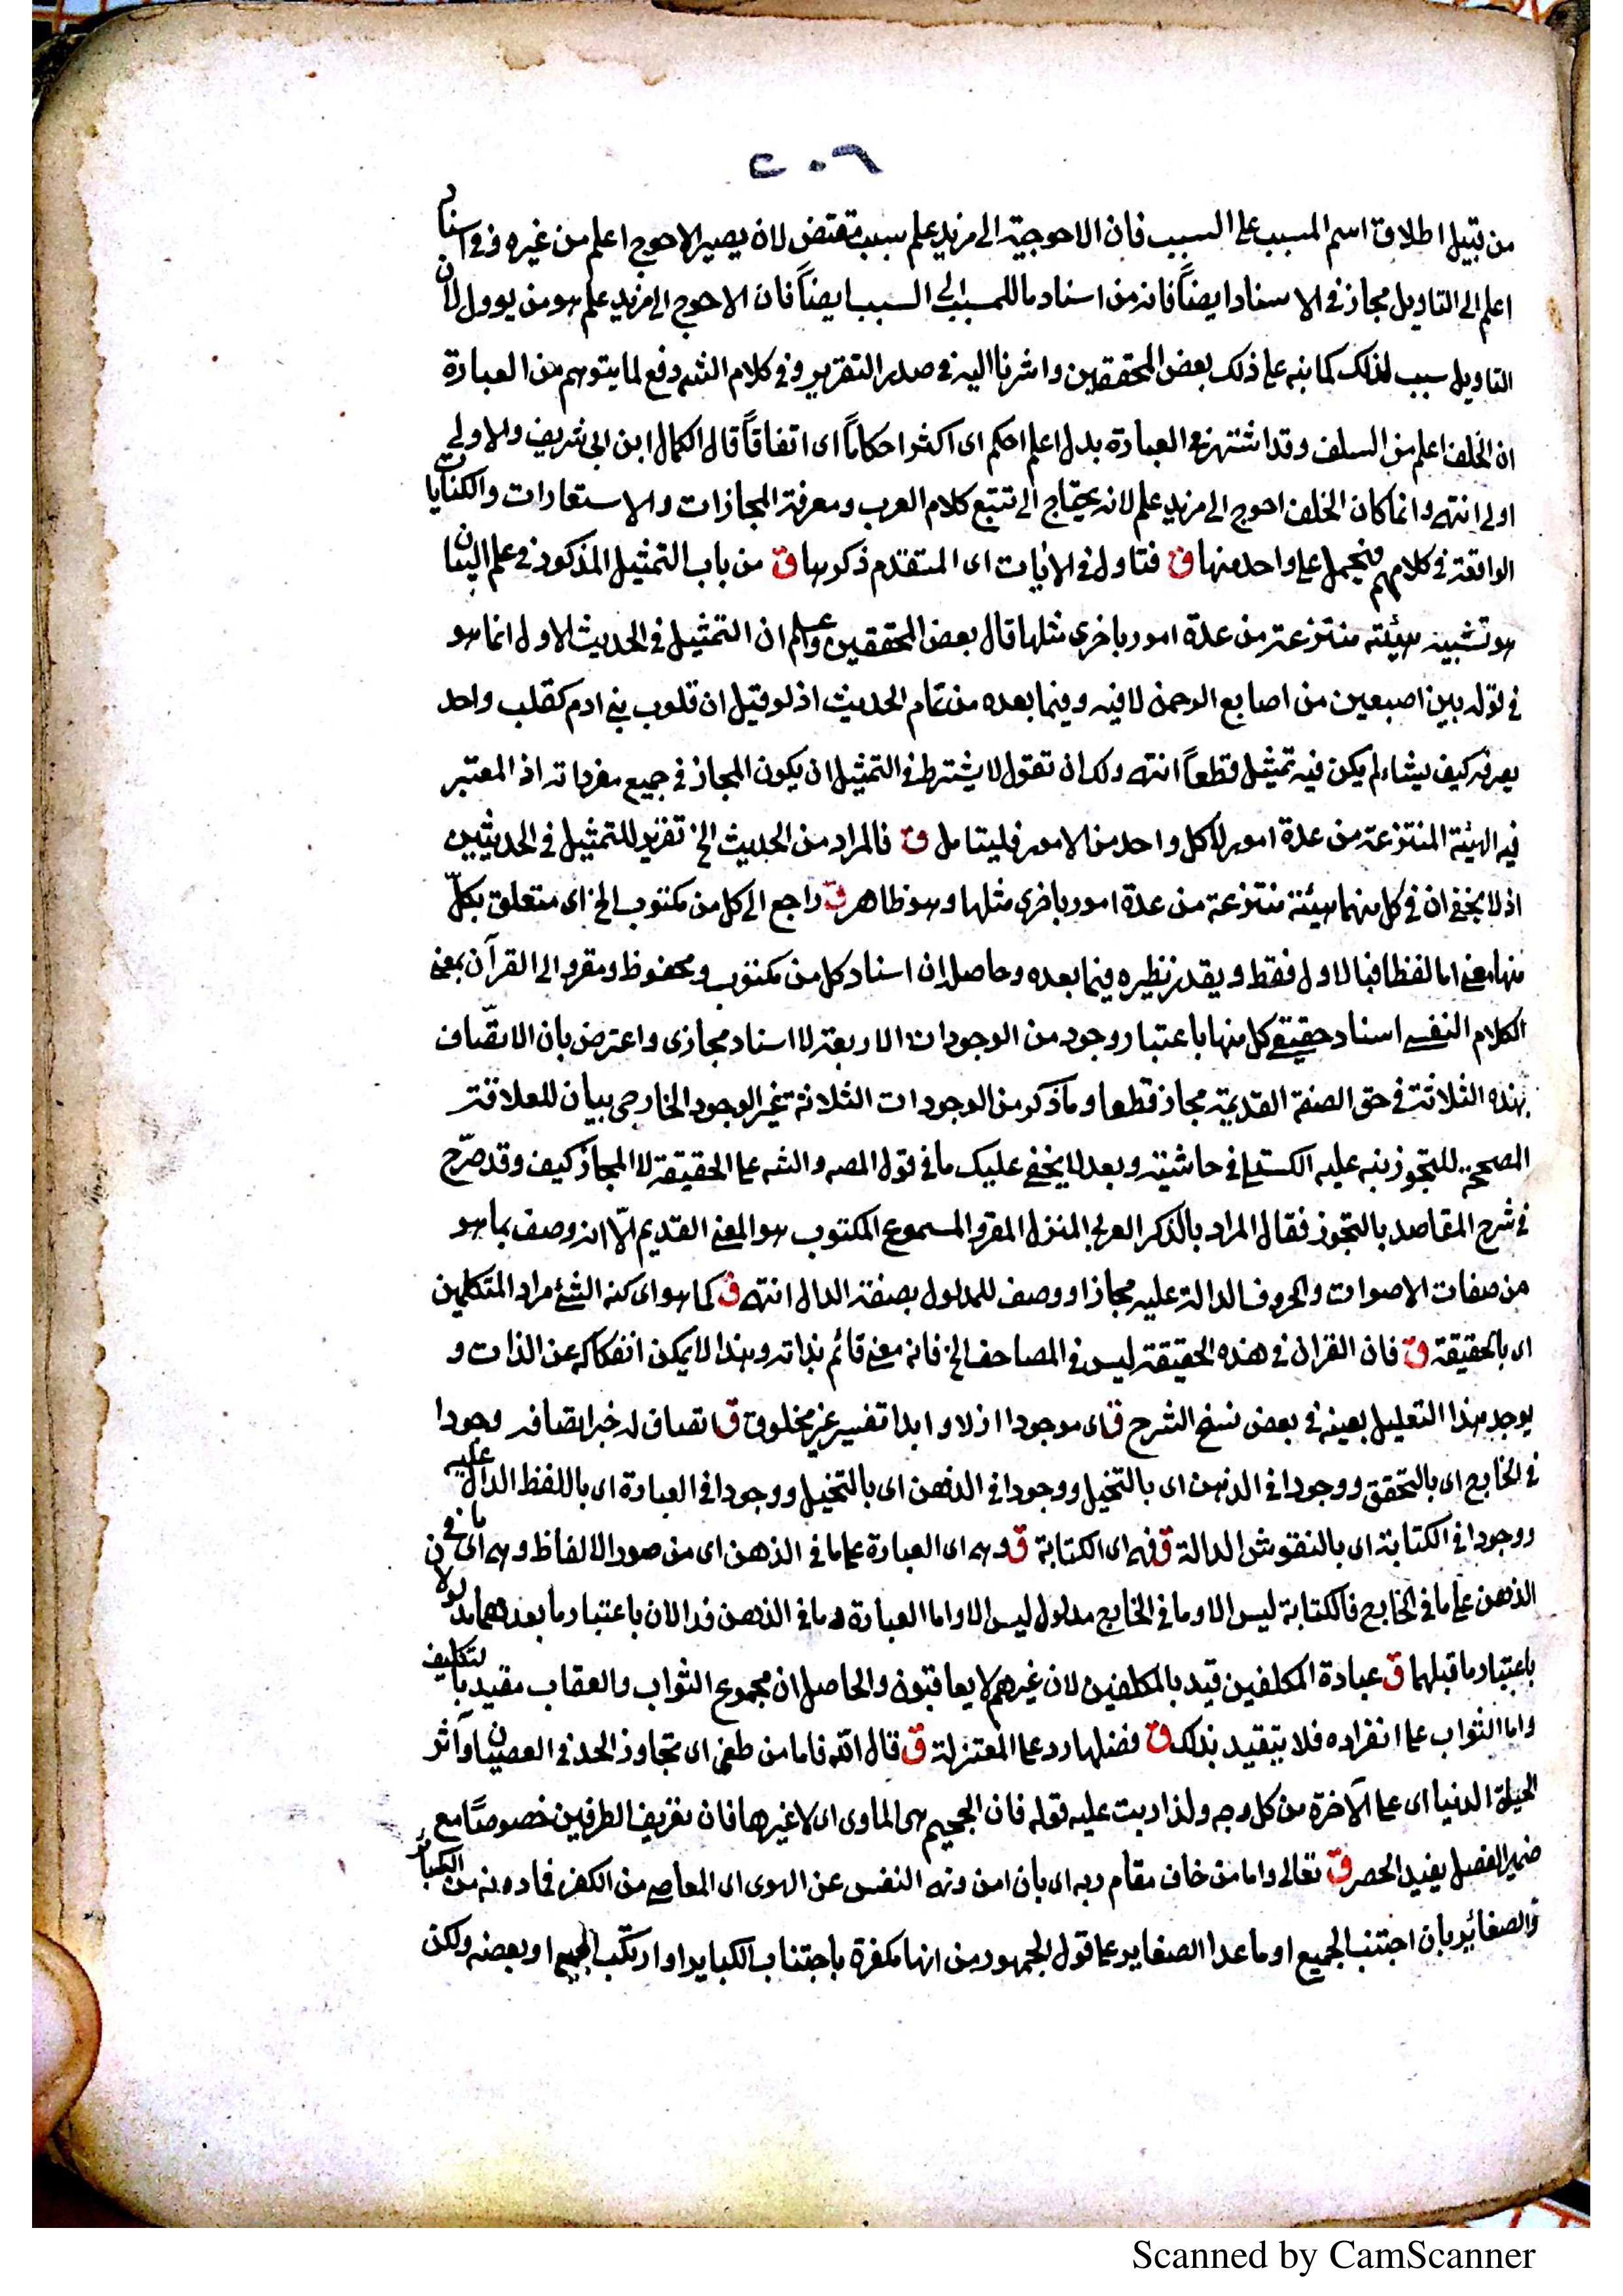 ٢٠٦
من قبيل اطلاق اسم المسبب على السبب فان الاحوجية الى مزيد علم سبب مقتض لان يصير الاحوج اعلم من غيره وفى اسناد
اعلم الى التاويل مجاز فى الاسناد ايضاً فانه من اسناد ما للمسبب الى السبب ايضاً فان الاحوج الى مزيد علم هو من يوول لان
التاويل سبب لذلك كما نبه على ذلك بعض المحققين واشرنا اليه فى صدر التقرير وفى كلام الشه دفع لما يتوهم من العبارة
ان الخلف اعلم من السلف وقد اشتهر فى العبارة بدل اعلم احكم اى اكثر احكاماً اى اتفاقاً قال الكمال ابن ابى شريف والاولى
اولى انتهى وانما كان الخلف احوج الى مزيد علم لانه يحتاج الى تتبع كلام العرب ومعرفة المجازات والاستعارات والكنايات
الواقعة فى كلامهم فيحمل على واحد منها ق فتاول فى الايات اى المتقدم ذكرها ق من باب التمثيل المذكور فى علم البيان
هو تشبيه هيئة منتزعة من عدة امور باخرى مثلها قال بعض المحققين واعلم ان التمثيل فى الحديث الاول انما هو
فى قوله بين اصبعين من اصابع الرحمن لا فيه وفيما بعده من تمام الحديث اذ لو قيل ان قلوب بنى ادم كقلب واحد
يصرفه كيف يشاء لم يكن فيه تمثيل قطعاً انتهى ولك ان تقول لا يشترط فى التمثيل ان يكون المجاز فى جميع مفرداته اذ المعتبر
فيه الهيئة المنتزعة من عدة امور لا كل واحد من الامور فليتامل ق فالمراد من الحديث الخ تقرير للتمثيل فى الحديثين
اذ لا يخفى ان فى كل منهما هيئة منتزعة من عدة امور باخرى مثلها وهو ظاهر ق راجع الى كل من مكتوب الخ اى متعلق بكلّ
منها معنى اما لفظا فبالاول فقط ويقدر نظيره فيما بعده وحاصله ان اسناد كل من مكتوب ومحفوظ ومقرو الى القرآن بمعنى
الكلام النفسى اسناد حقيقى كل منها باعتبار وجود من الوجودات الاربعة لا اسناد مجازى واعترض بان الاتصّاف
بهذه الثلاثة فى حق الصفة القديمة مجاز قطعا وما ذكر من الوجودات الثلاثة غير الوجود الخارجى بيان للعلاقة
المصححة للتجوز نبه عليه الكستلى فى حاشيته وبعد لا يخفى عليك ما فى قول المصه والشه على الحقيقة لا المجاز كيف وقد صرّح
فى شرح المقاصد بالتجوز فقال المراد بالذكر العربى المنزل المقرو المسموع المكتوب هو المعنى القديم الّا انه وصف بما هو
من صفات الاصوات والحروف الدالة عليه مجازا ووصف للمدلول بصفة الدال انتهى ق كما هو اى كنه الشئ مراد المتكلمين
اى بالحقيقة ق فان القران فى هذه الحقيقة ليس فى المصاحف الخ فانه معنى قائم بذاته وبهذا لا يمكن انفكاكه عن الذات و
يوجد هذا التعليل بعينه فى بعض نسخ الشرح ق اى موجودا ازلا وابدا تفسير غير مخلوق ق اتصاف له خبر اتصافه وجودا
فى الخارج اى بالتحقق ووجودا فى الذهن اى بالتخيل ووجودا فى الذهن اى بالتخيل ووجودا فى العبارة اى باللفظ الدال عليه
ووجودا فى الكتابة اى بالنقوش الدالة ق فهى اى الكتابة ق وهى اى العبارة على ما فى الذهن اى من صور الالفاظ وهى اى ما فى
الذهن على ما فى الخارج فالكتابة ليس الا وما فى الخارج مدلول ليس الا واما العبارة وما فى الذهن فدالان باعتبار ما بعدهما مدلولان
باعتبار ما قبلهما ق عبادة المكلفين قيد بالمكلفين لان غيرهم لا يعاقبون والحاصل ان مجموع الثواب والعقاب مقيد بالتكليف
واما الثواب على انفراده فلا يتقيد بذلك ق فضلها رد على المعتزلة ق قال الله فاما من طغى اى تجاوز الحد فى العصيان وآثر
الحيوة الدنيا اى على الآخرة من كل وجه ولذا رتب عليه قوله فان الجحيم هى الماوى اى لا غيرها فان تعريف الطرفين خصوصًا مع
ضمير الفصل يفيد الحصر ق تعالى واما من خاف مقام ربه اى بان امن ونهى النفس عن الهوى اى المعاصى من الكفر فما دونه من الكبائر
والصغائر بان اجتنب الجميع او ما عدا الصغاير على قول الجمهور من انها مكفرة باجتناب الكبايرا او ارتكب الجميع او بعضه ولكن
Scanned by CamScanner